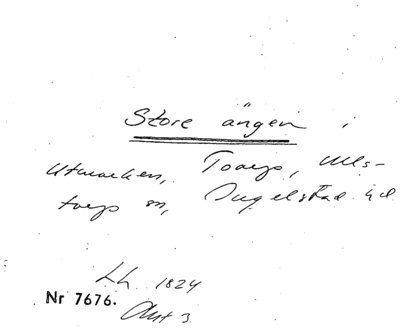 Store ängen i
Utmarken, Toarps, Uls-
torps sn, Ingelstad hd
Lh 1824
Nr 7676.
Akt 3